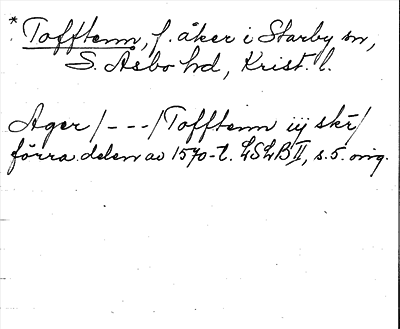 * Tofftenn, f. åker i Starby sn,
S. Åsbo hd, Krist. l.
Ager /---/ Tofftenn iij skr/
förra delen av 1570-t. LSLB II, s. 5. orig.